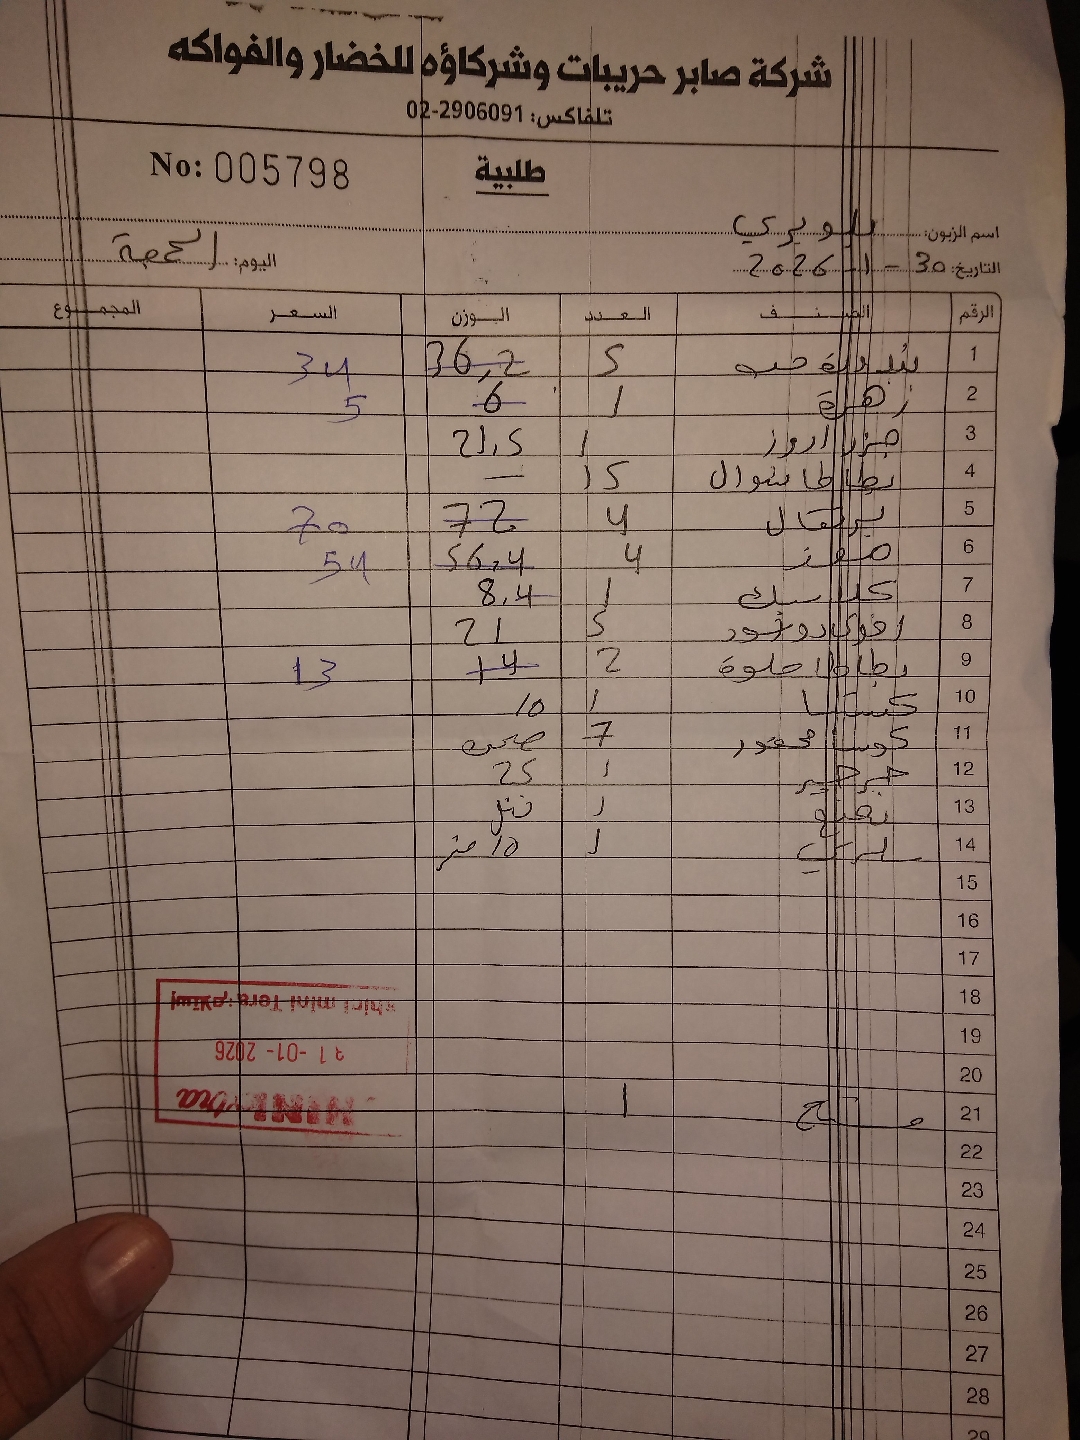 شركة صابر حريبات وشركاؤه للخضار والفواكه
تلفاكس: 02-2906091
No: 005798
طلبية
اسم الزبون:
التاريخ: 30 - 1 - 2026
اليوم: الجمعة
الرقم الصنف العدد الوزن السعر المجموع
1 بندورة حب 5 36,2 34
2 زهرة 1 6 5
3 جزر 1 21,5
4 بطاطا شوال 15 —
5 برتقال 4 72 70
6 موز 4 56,4 54
7 1 8,4
8 5 21
9 بطاطا حلوة 2 14 13
10 1 10
11 كوسا محفور 7 صحن
12 جرجير 1 25
13 نعنع 1
14 1 10
15
16
17
18
19
20
21 1
22
23
24
25
26
27
28
29
MINI
إستلام